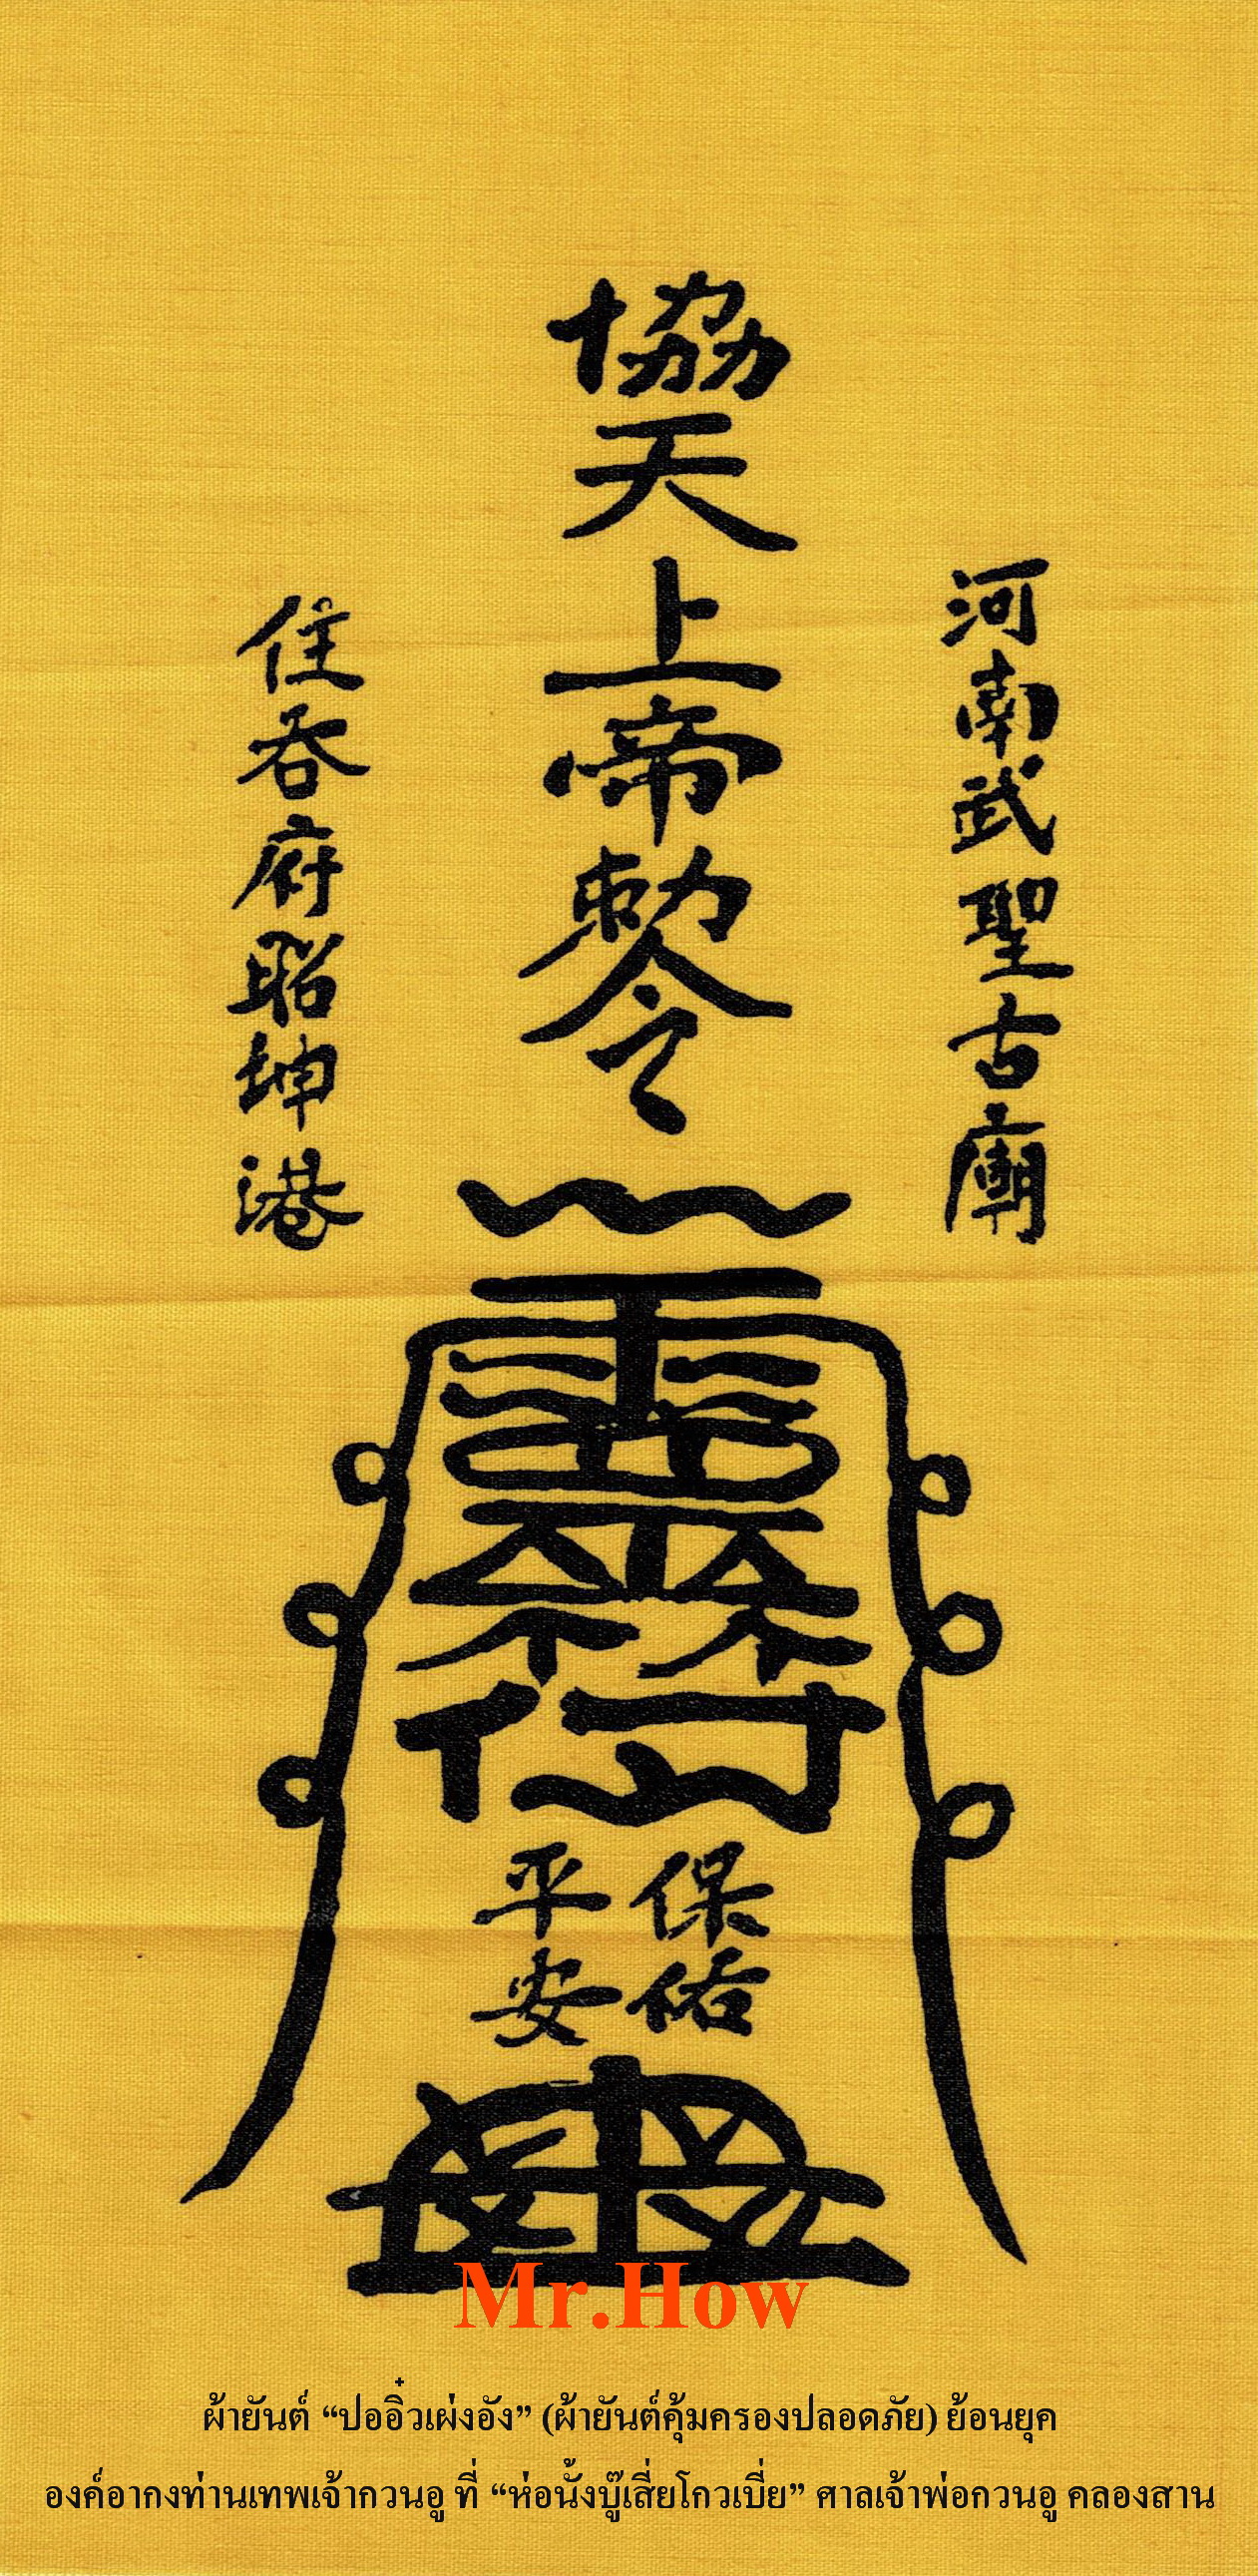 協天上帝勅令
河南武聖古廟
住吞府昭坤港
保佑
平安
Mr.How
ผ้ายันต์ “ปออิ๋วเผ่งอัง” (ผ้ายันต์คุ้มครองปลอดภัย) ย้อนยุค
องค์อากงท่านเทพเจ้ากวนอู ที่ “ห่อนั้งบู๊เสี่ยโกวเบี่ย” ศาลเจ้าพ่อกวนอู คลองสาน